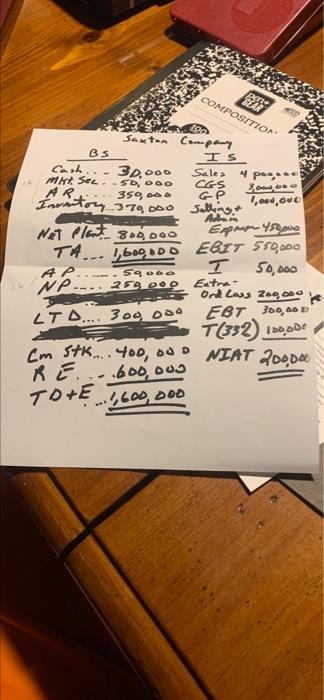 COMPOSITION
100
Saxton Company
BS
Cash.... 30,000
Mkt Sec... 50,000
AR...... 350,000
Inventory.. 370,000
Net Plant.. 800,000
TA... 1,600,000
AP..... 50,000
NP..... 250,000
LTD... 300,000
Cm Stk.... 400,000
RE.... 600,000
TD+E...1,600,000
IS
Sales 4,000,000
CGS 3,000,000
GP 1,000,000
Selling +
Admin
Expenses 450,000
EBIT 550,000
I 50,000
Extra-
Ord Loss 200,000
EBT 300,000
T(33%) 100,000
NIAT 200,000